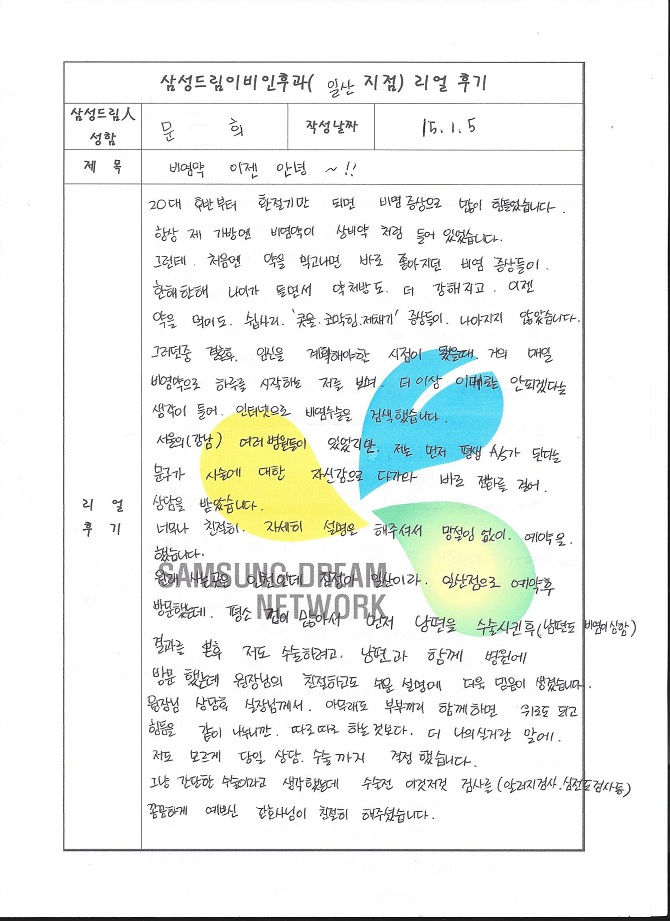 삼성드림이비인후과( 일산 지점) 리얼 후기
삼성드림人 성함
문 희
작성날짜
15. 1. 5
제 목
비염약 이젠 안녕 ~ !!
리 얼 후 기
20대 후반부터 환절기만 되면 비염 증상으로 많이 힘들었습니다.
항상 제 가방엔 비염약이 상비약 처럼 들어 있었습니다.
그런데. 처음엔 약을 먹고나면 바로 좋아지던 비염 증상들이.
한해한해 나이가 들면서 약처방도. 더 강해지고. 이젠
약을 먹어도. 쉽사리. '콧물.코막힘.재채기' 증상들이. 나아지지 않았습니다.
그러던중 결혼후. 임신을 계획해야할 시점이 왔을때. 거의 매일
비염약으로 하루를 시작하는 저를 보며. 더이상 이대로는 안되겠다는
생각이 들어. 인터넷으로 비염수술을 검색했습니다.
서울의(강남) 여러병원들이 있었지만. 저는 먼저 평생 A/S가 된다는
문구가 시술에 대한 자신감으로 다가와 바로 전화를 걸어.
상담을 받았습니다.
너무나 친절히. 자세히 설명을 해주셔서 망설임 없이. 예약을.
했습니다.
원래 사는곳은 인천인데 직장이 일산이라. 일산점으로 예약후
방문했는데. 평소 겁이 많아서 먼저 남편을 수술시킨후(남편도 비염이심함)
결과를 본후 저도 수술하려고. 남편과 함께 병원에
방문 했는데 원장님의 친절하고도 쉬운 설명에 더욱 믿음이 생겼습니다.
원장님 상담후 실장님께서. 아무래도 부부끼리 함께하면 위로도 되고
힘듦을 같이 나누니깐. 따로따로 하는것보다. 더 나으실거란 말에.
저도 모르게 당일 상담. 수술까지 결정 했습니다.
그냥 간단한 수술이라고 생각했는데 수술전 이것저것 검사를(알러지검사.심전도검사등)
꼼꼼하게 예쁘신 간호사님이 친절히 해주셨습니다.
SAMSUNG DREAM
NETWORK